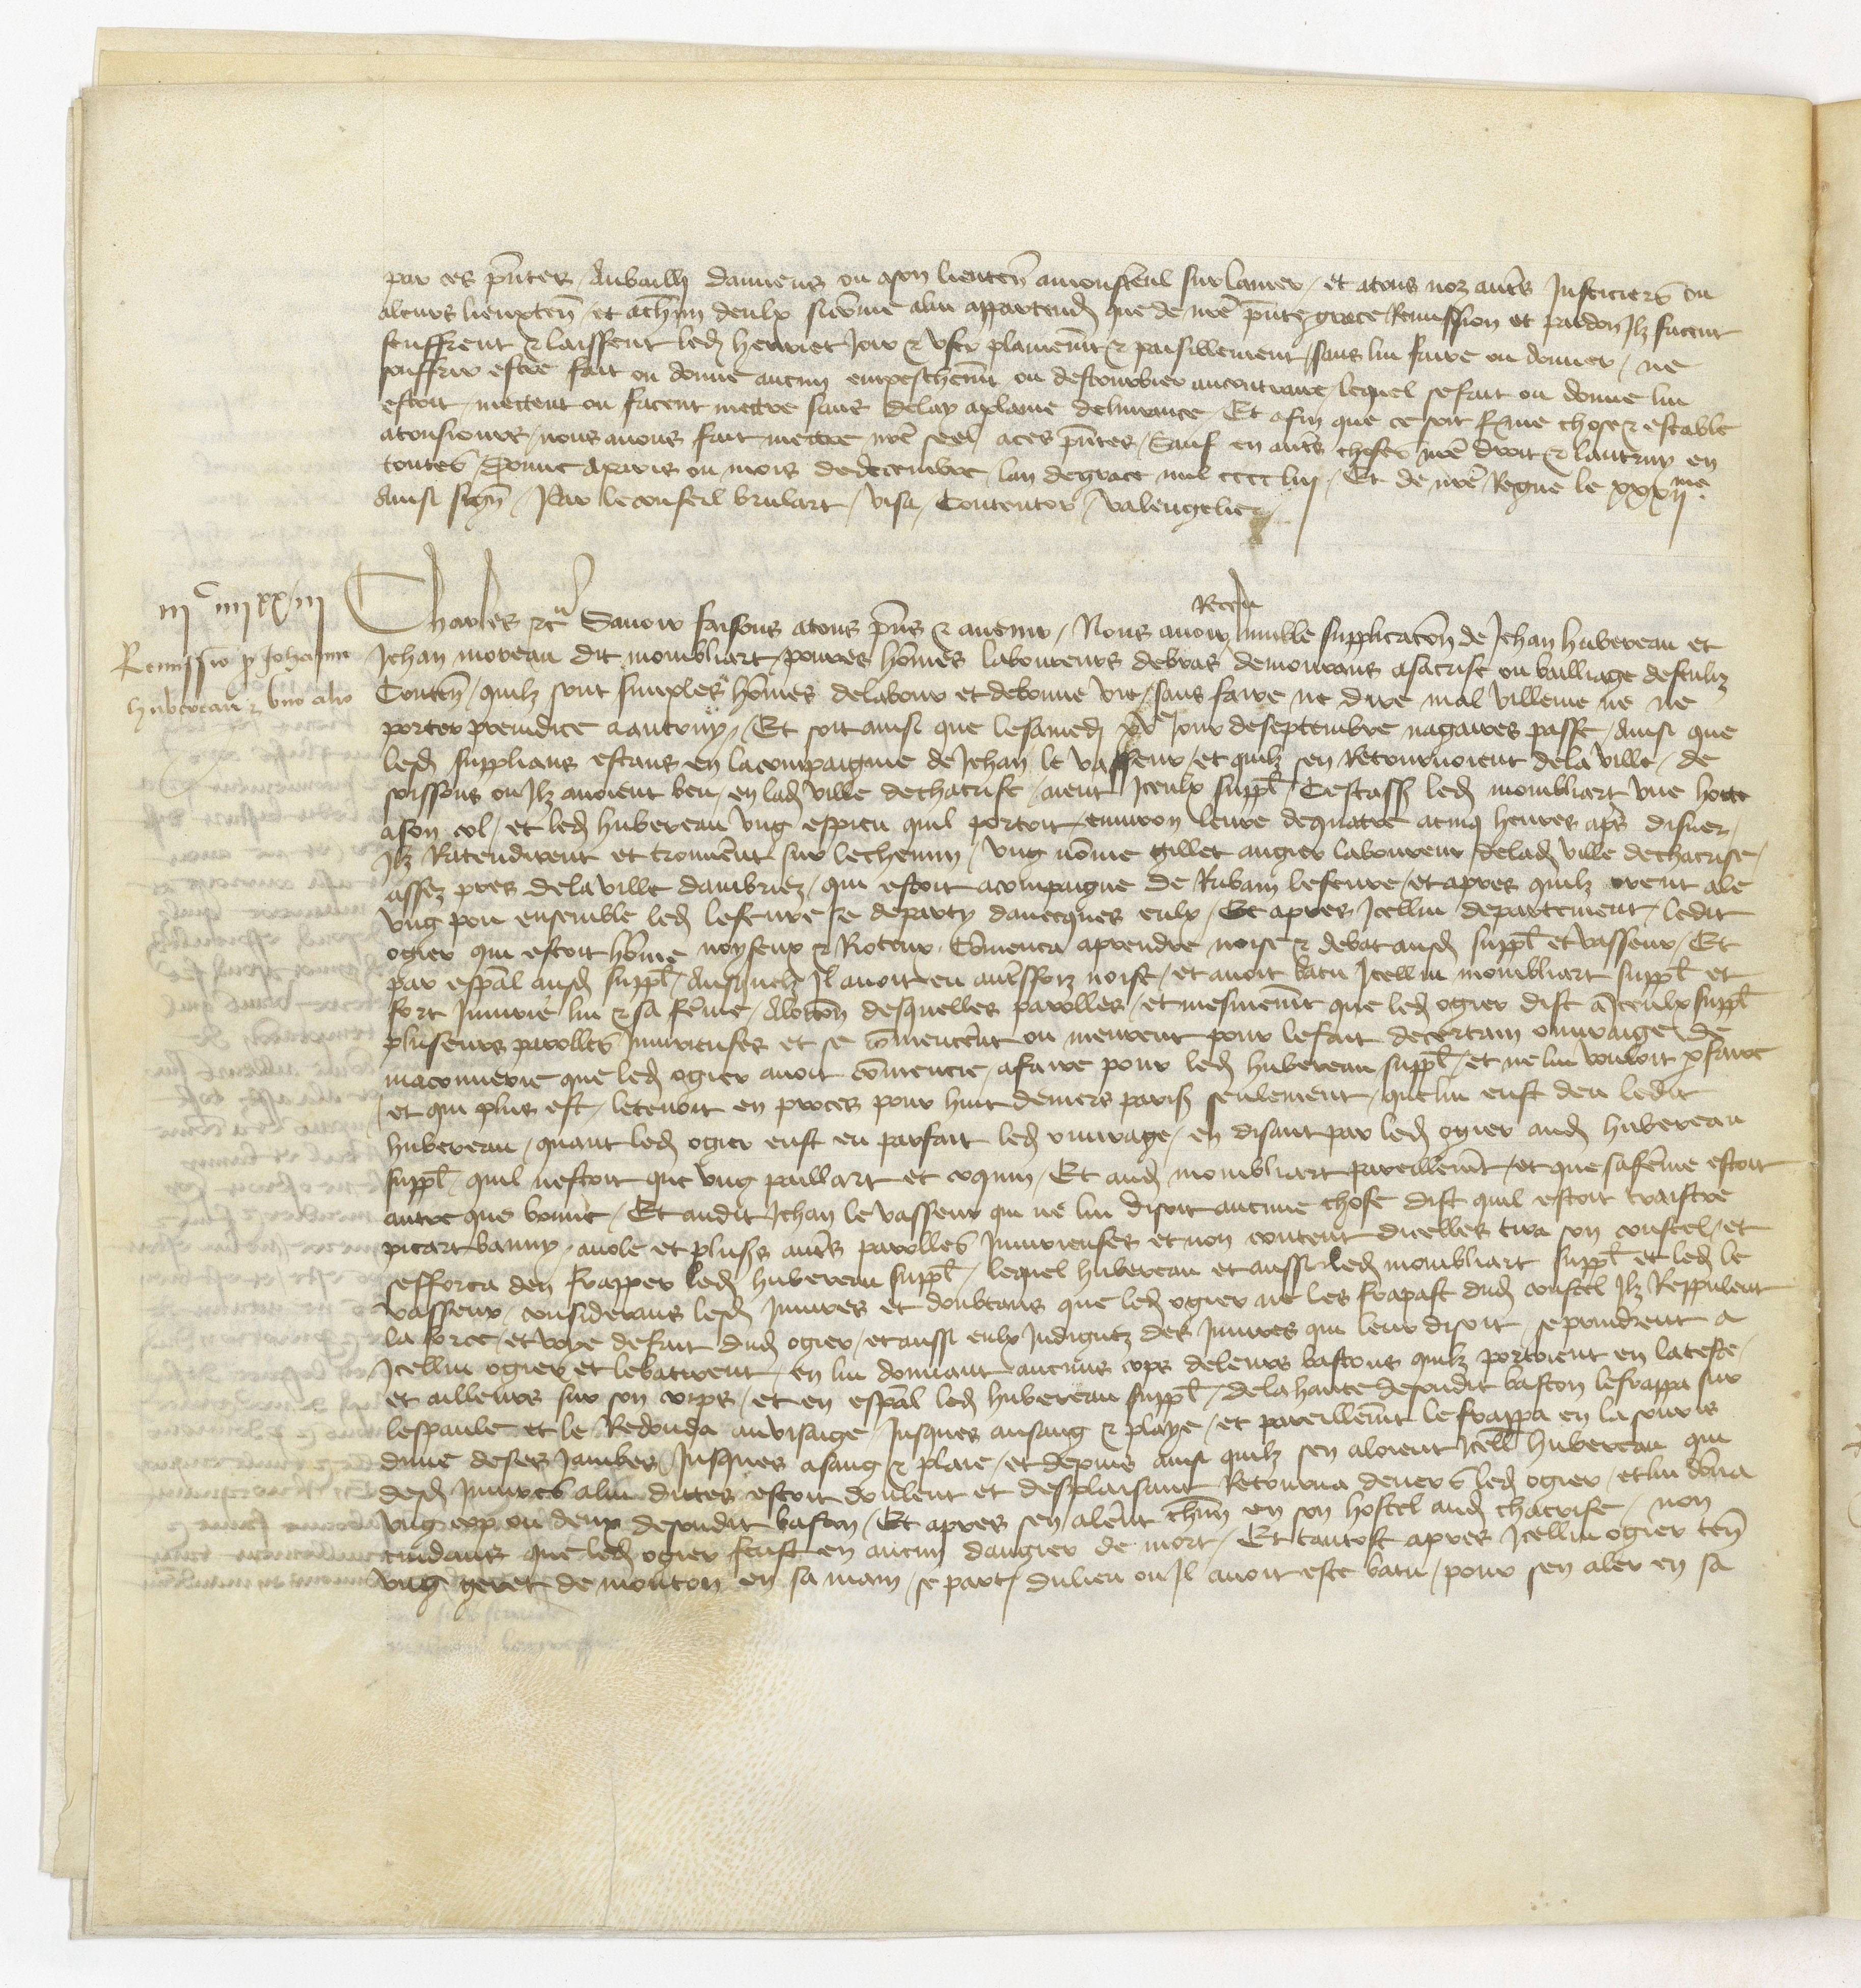 par ces pñtes Au bailli damiens ou a son lieuteñ a monsteul sur la mer / et a tous noz autẽs Justiciers ou
a leurs lieuxteñ / et a chũn deulx si cõme a lui appartendra que de nr̃e pñte grace Remission et pardon Ilz facent
seuffrent & laissent led henriet Joir & vser plainemt & paisiblement / sans lui faire ou donner / ne
souffrir estre fait ou donne aucun empeschemt ou destourbier au contraire / lequel se fait ou donne lui
estoit / mettent ou facent mettre sans delay a plaine deliurance / Et afin que ce soit fẽme chose & estable
a tousiours / nous auons fait mettre nr̃e seel a ces pñtes / Sauf en autẽs choses nr̃e droit & lautruy en
toutes / Donne a paris ou mois de decembre lan de grace mil cccc liij / Et de nr̃e Regne le xxxijme
Ainsi signẽ / Par le conseil brulart / visa / Contentor / valengelier /
iijc iiijxx iij
Remissio p Johanne
hubereau & vno alio
Charles &c Sauoir faisons a tous pñs & auenir / Nous auoir Receu humble supplicacõn de Jehan hubereau et
Jehan moreau dit monbliart / poures hõmes laboureurs de bras demourans a sacrise ou bailliage de senliz
Conteñ / quilz sont simples hõmes de labour et de bonne vie / sans faire ne dire mal villenie ne ne
porter preiudice a autruy // Et soit ainsi que le samedi xve Jour de septembre nagaires passe / Ainsi que
lesd supplians estans en la compaignie de Jehan le vasseur / et quilz sen Retournoient de la ville / de
soissons ou Ilz auoient beu / en lad ville de chacrise / aient Iceulx suppl / Cestassr led monbliart vne hotte
a son col / et led hubereau vng espieu quil portoit / enuiron leure de quatre a cinq heures apr̃s disner /
Ilz Ratendirent et trouuerẽt sur le chemin / vng nõme gillet augier laboureur de lad ville de chacrise /
assez pres de la ville dambriez / qui estoit acompaigne de Rubain lefeure / et apres quilz orent ale
vng pou ensemble led lefeure se departy dauecques eulx / Et apres Icellui departement / ledit
ogier qui estoit hõme noyseux & Roteur Cõmenca a prendre noise & debat ausd suppl et vasseur / Et
par esp̃al ausd suppl / Ausquelz Il auoit eu autẽffoiz noise / et auoit batu Icellui monbliart suppl et
fort Iniurie lui & sa fẽme / A loccõn desquelles parolles / et mesmemt que led ogier dist a Iceulx suppl
pluseurs parolles Iniurieuses et se cõmencerẽt ou meurent pour le fait de certain ouuraige de
maconnerie que led ogier auoit cõmencie a faire pour led hubereau suppl / et ne lui vouloit pfaire
/ et qui plus est / le tenoit en proces pour huit deniers paris seulement / que lui eust deu ledit
hubereau / quant led ogier eust eu parfait led ouurage / en disant par led ogier aud hubereau
suppl / quil nestoit que vng paillart et coquin / Et aud monbliart pareillemt / et que sa fẽme estoit
autre que bonne / Et audit Jehan le vasseur qui ne lui disoit aucune chose dist quil estoit traistre
picart banny / auole et plusrs autẽs parolles Iniurieuses et non content dicelles tira son coustel / et
sefforca den frapper led hubereau suppl / lequel hubereau et aussi led monbliart suppl et led le
vasseur / considerans lesd Iniures et doubtans que led ogier ne les frapast dud coustel Ilz Reppulent
la force / et voye de fait dud ogier / et aussi eulx Indignez des Iniures qui leur disoit / se prindrent a
Icellui ogier et le batirent / en lui donnant aucuns cops de leurs bastons quilz portoient en la teste /
et ailleurs sur son corps / et en esp̃al led hubereau suppl / de la hante de sondit baston le frappa sur
lespaule et le Redonda au visaige / Jusques au sang & playe / et pareillemt le frappa en la souris
dune de ses Jambes / Jusques a sang & plaie / et depuis ainsi quilz sen aloient Icell hubereau qui
desd Iniures a lui dittes estoit doulent et desplaisant Retourna deuers led ogier / et lui dõna
vng cop ou deux de sondit baston / Et apres sen alerẽt chũn en son hostel aud chacrise / non
cuidans que led ogier feust en aucun dangier de mort / Et tantost apres Icellui ogier teñ
vng geret de mouton en sa main / se party du lieu ou Il auoit este batu / pour sen aler en sa